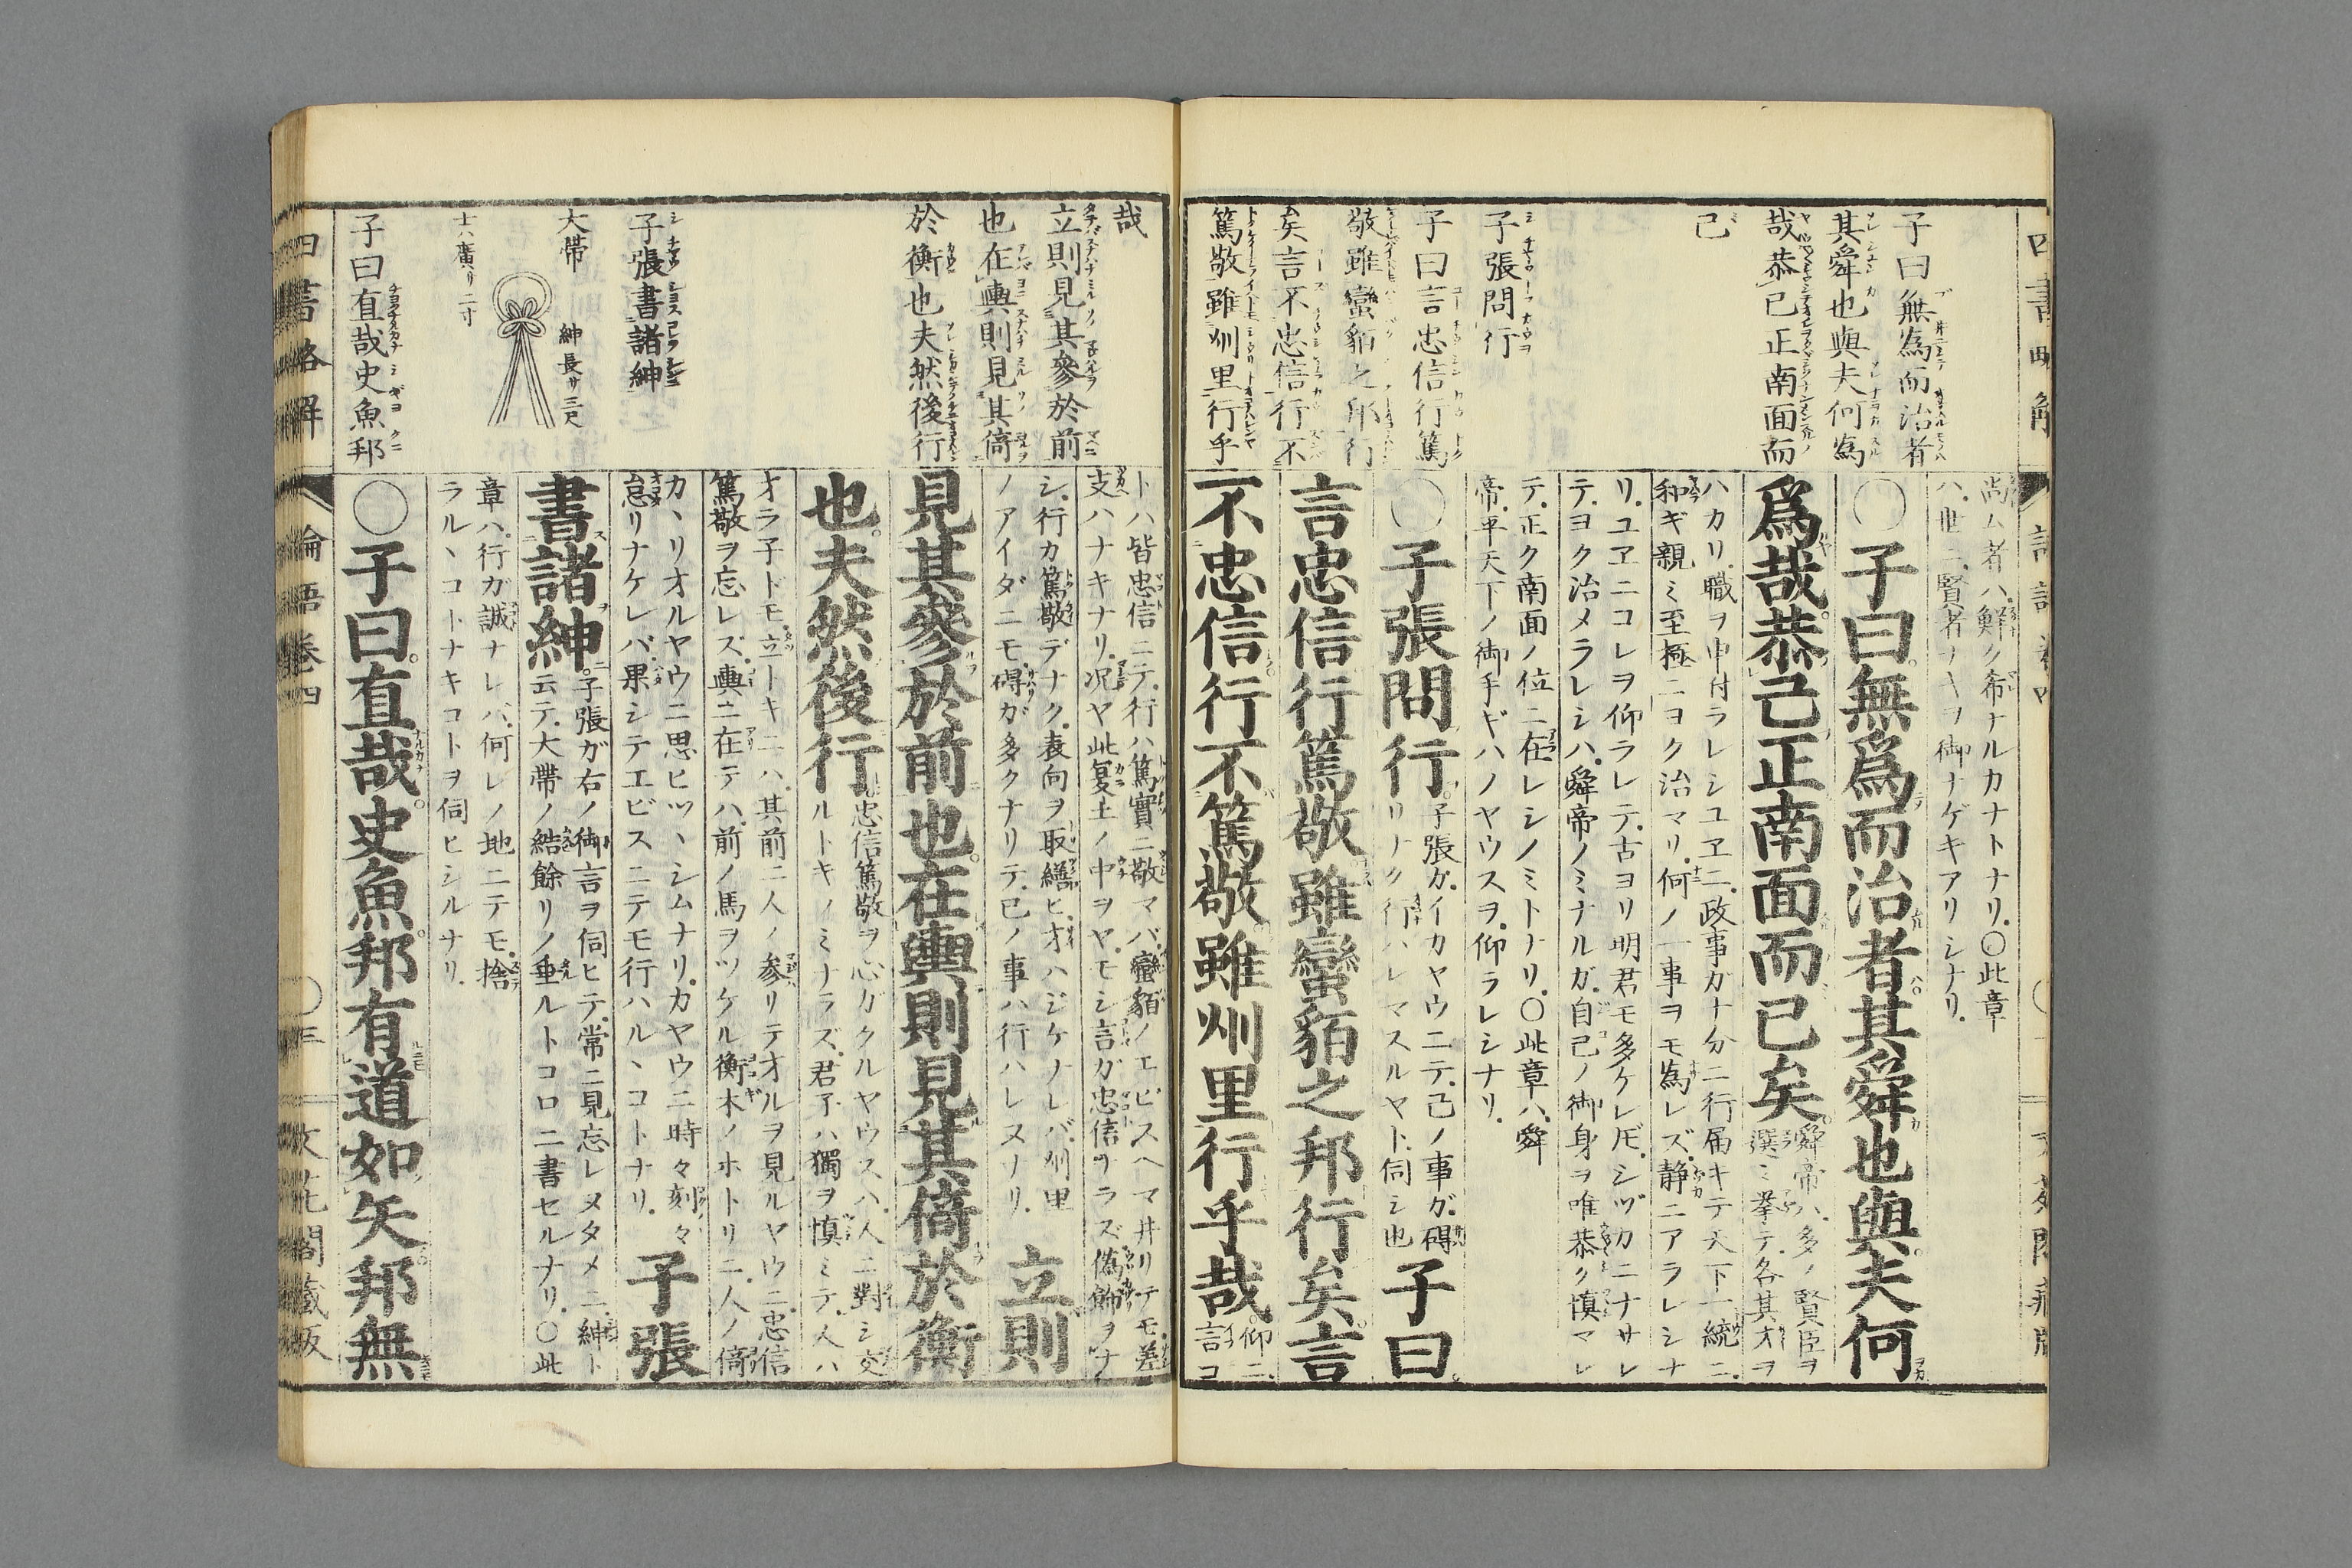 子曰無為而治者
其舜也與夫何為
哉恭已正南面而
已
子張問行
子曰言忠信行篤
敬雖蠻貊之邦行
矣言不忠信行不
篤敬雖州里行乎
尚ム者ハ鮮ク希ナルカナトナリ○此章
ハ世ニ賢者ナキヲ御ナゲキアリシナリ
○子曰無爲而治者其舜也與夫何
爲哉恭己正南面而已矣
舜帝ハ多ノ賢臣ヲ
選ミ挙テ各其オヲ
ハカリ職ヲ申付ラレシユヱニ政事ガ十分ニ行届キテ天下一統ニ
和ギ親ミ至極ニヨク治マリ何ノ一事ヲモ為レズ静ニアラレシナ
リユヱニコレヲ仰ラレテ古ヨリ明君モ多ケレ𪜈シヅカニナサレ
テヨク治メラレシハ舜帝ノミナルガ自己ノ御身ヲ唯恭ク慎マレ
テ正ク南面ノ位ニ在レシノミトナリ○此章ハ舜
帝平天下ノ御手ギハノヤウスヲ仰ラレシナリ
○子張問行
子張ガイカヤウニテ己ノ事ガ碍
リナク行ハレマスルヤト伺シ也
子曰
言忠信行篤敬雖蠻貊之邦行矣言
不忠信行不篤敬雖州里行乎哉
仰ニ
言コ
哉
立則見其參於前
也在輿則見其倚
於衡也夫然後行
子張書諸紳
大帶
紳長サ三尺
士ハ廣サ二寸
子曰直哉史魚邦
トハ皆忠信ニテ行ハ篤實ニ敬マバ蠻貊ノエビスヘマ井リテモ差
支ハナキナリ况ヤ此夏土ノ中ヲヤモシ言ガ忠信ナラズ偽飾ヲナ
シ行カ篤敬デナク表向ヲ取繕ヒオハジケナレバ州里
ノアイダニモ碍ガ多クナリテ己ノ事ハ行ハレヌナリ
立則
見其參於前也在輿則見其倚於衡
也夫然後行
忠信篤敬ヲ心ガクルヤウスハ人ニ對シ交
ルトキノミナラズ君子ハ獨ヲ慎ミテ人ハ
オラ子ドモ立トキニハ其前ニ人ノ参リテオルヲ見ルヤウニ忠信
篤敬ヲ忘レズ輿ニ在テハ前ノ馬ヲツケル衡木ノホトリニ人ノ倚
カヽリオルヤウニ思ヒツヽシムナリカヤウニ時々刻々
怠リナケレバ果シテエビスニテモ行ハルヽコトナリ
子張
書諸紳
子張ガ右ノ御言ヲ伺ヒテ常ニ見忘レヌタメニ紳ト
云テ大帶ノ結餘リノ垂ルトコロニ書セルナリ○此
章ハ行ガ誠ナレバ何レノ地ニテモ捨
ラルヽコトナキコトヲ伺ヒシルナリ
○子曰直哉史魚邦有道如矢邦無
四書略解
論語卷四
文花閣藏版